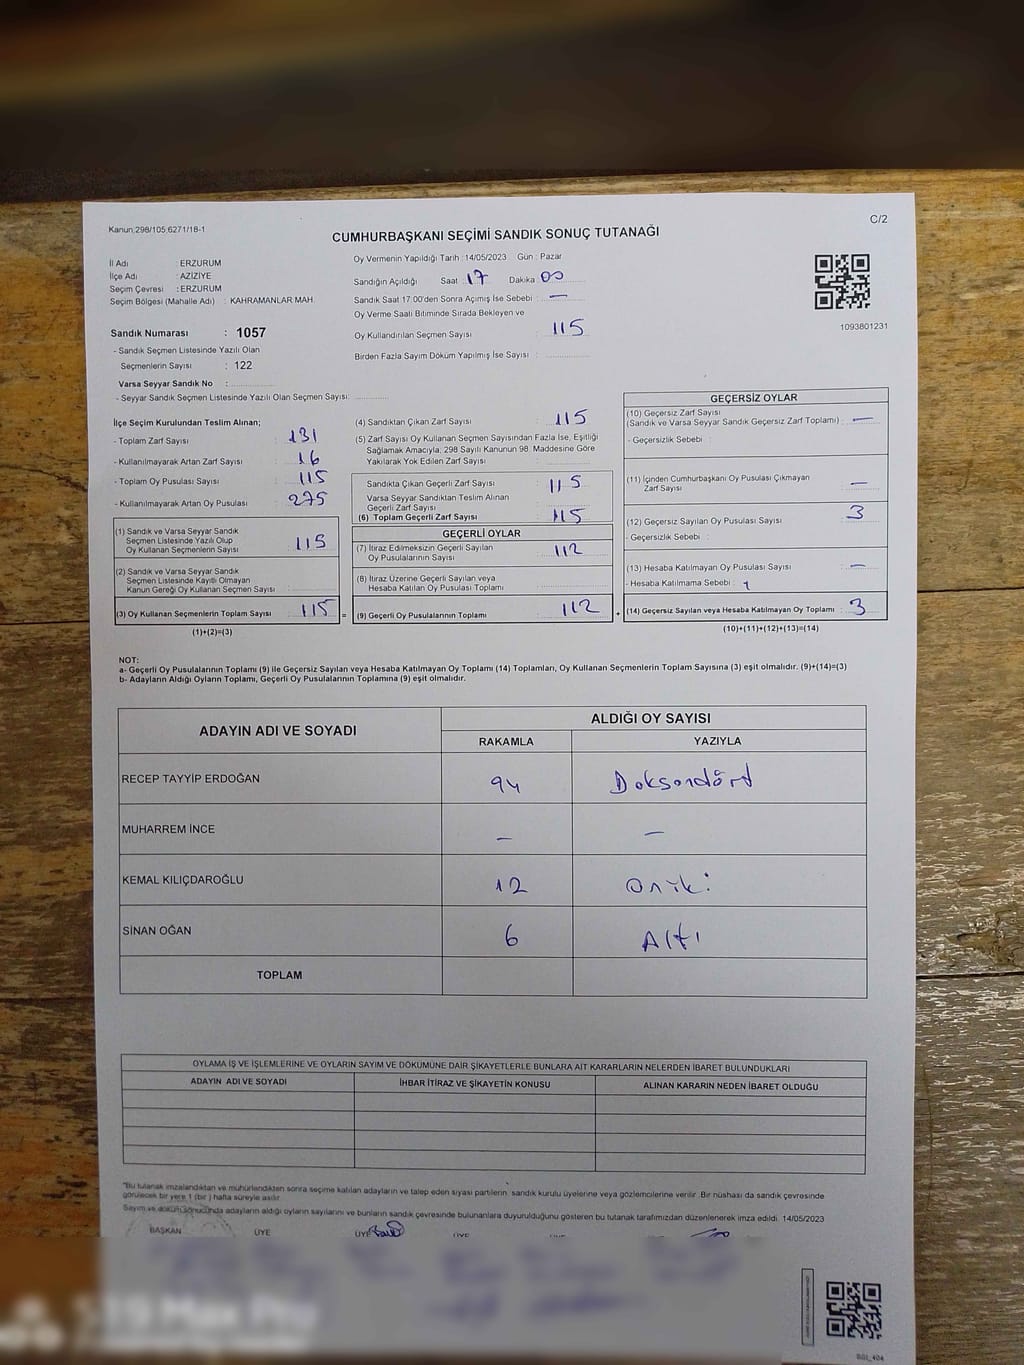 Kanun:298/105,6271/18-1
C/2
CUMHURBAŞKANI SEÇİMİ SANDIK SONUÇ TUTANAĞI
İl Adı : ERZURUM
İlçe Adı : AZİZİYE
Seçim Çevresi : ERZURUM
Seçim Bölgesi (Mahalle Adı) : KAHRAMANLAR MAH.
Sandık Numarası : 1057
- Sandık Seçmen Listesinde Yazılı Olan
Seçmenlerin Sayısı : 122
Varsa Seyyar Sandık No :
- Seyyar Sandık Seçmen Listesinde Yazılı Olan Seçmen Sayısı:
Oy Vermenin Yapıldığı Tarih : 14/05/2023 Gün : Pazar
Sandığın Açıldığı Saat 17 Dakika 00
Sandık Saat 17.00'den Sonra Açımış İse Sebebi : —
Oy Verme Saati Bitiminde Sırada Bekleyen ve
Oy Kullandırılan Seçmen Sayısı : 115
Birden Fazla Sayım Döküm Yapılmış İse Sayısı :
1093801231
İlçe Seçim Kurulundan Teslim Alınan;
- Toplam Zarf Sayısı : 131
- Kullanılmayarak Artan Zarf Sayısı : 16
- Toplam Oy Pusulası Sayısı : 115
- Kullanılmayarak Artan Oy Pusulası : 275
(1) Sandık ve Varsa Seyyar Sandık
Seçmen Listesinde Yazılı Olup
Oy Kullanan Seçmenlerin Sayısı : 115
(2) Sandık ve Varsa Seyyar Sandık
Seçmen Listesinde Kayıtlı Olmayan
Kanun Gereği Oy Kullanan Seçmen Sayısı :
(3) Oy Kullanan Seçmenlerin Toplam Sayısı : 115 =
(1)+(2)=(3)
(4) Sandıktan Çıkan Zarf Sayısı : 115
(5) Zarf Sayısı Oy Kullanan Seçmen Sayısından Fazla İse, Eşitliği
Sağlamak Amacıyla, 298 Sayılı Kanunun 98. Maddesine Göre
Yakılarak Yok Edilen Zarf Sayısı :
Sandıkta Çıkan Geçerli Zarf Sayısı : 115
Varsa Seyyar Sandıktan Teslim Alınan
Geçerli Zarf Sayısı :
(6) Toplam Geçerli Zarf Sayısı : 115
GEÇERLİ OYLAR
(7) İtiraz Edilmeksizin Geçerli Sayılan
Oy Pusulalarının Sayısı : 112
(8) İtiraz Üzerine Geçerli Sayılan veya
Hesaba Katılan Oy Pusulası Toplamı :
(9) Geçerli Oy Pusulalarının Toplamı : 112 +
GEÇERSİZ OYLAR
(10) Geçersiz Zarf Sayısı
(Sandık ve Varsa Seyyar Sandık Geçersiz Zarf Toplamı) : —
- Geçersizlik Sebebi :
(11) İçinden Cumhurbaşkanı Oy Pusulası Çıkmayan
Zarf Sayısı : —
(12) Geçersiz Sayılan Oy Pusulası Sayısı : 3
- Geçersizlik Sebebi :
(13) Hesaba Katılmayan Oy Pusulası Sayısı : —
- Hesaba Katılmama Sebebi :
(14) Geçersiz Sayılan veya Hesaba Katılmayan Oy Toplamı : 3
(10)+(11)+(12)+(13)=(14)
NOT:
a- Geçerli Oy Pusulalarının Toplamı (9) ile Geçersiz Sayılan veya Hesaba Katılmayan Oy Toplamı (14) Toplamları, Oy Kullanan Seçmenlerin Toplam Sayısına (3) eşit olmalıdır. (9)+(14)=(3)
b- Adayların Aldığı Oyların Toplamı, Geçerli Oy Pusulalarının Toplamına (9) eşit olmalıdır.
ADAYIN ADI VE SOYADI ALDIĞI OY SAYISI
RAKAMLA YAZIYLA
RECEP TAYYİP ERDOĞAN 94 Doksandört
MUHARREM İNCE — —
KEMAL KILIÇDAROĞLU 12 oniki
SİNAN OĞAN 6 Altı
TOPLAM
OYLAMA İŞ VE İŞLEMLERİNE VE OYLARIN SAYIM VE DÖKÜMÜNE DAİR ŞİKAYETLERLE BUNLARA AİT KARARLARIN NELERDEN İBARET BULUNDUKLARI
ADAYIN ADI VE SOYADI İHBAR İTİRAZ VE ŞİKAYETİN KONUSU ALINAN KARARIN NEDEN İBARET OLDUĞU
"Bu tutanak imzalandıktan ve mühürlendikten sonra seçime katılan adayların ve talep eden siyasi partilerin, sandık kurulu üyelerine veya gözlemcilerine verilir. Bir nüshası da sandık çevresinde
görülecek bir yere 1 (bir) hafta süreyle asılır.
Sayım ve döküm sonucunda adayların aldığı oyların sayılarını ve bunların sandık çevresinde bulunanlara duyurulduğunu gösteren bu tutanak tarafımızdan düzenlenerek imza edildi. 14/05/2023
BAŞKAN ÜYE ÜYE